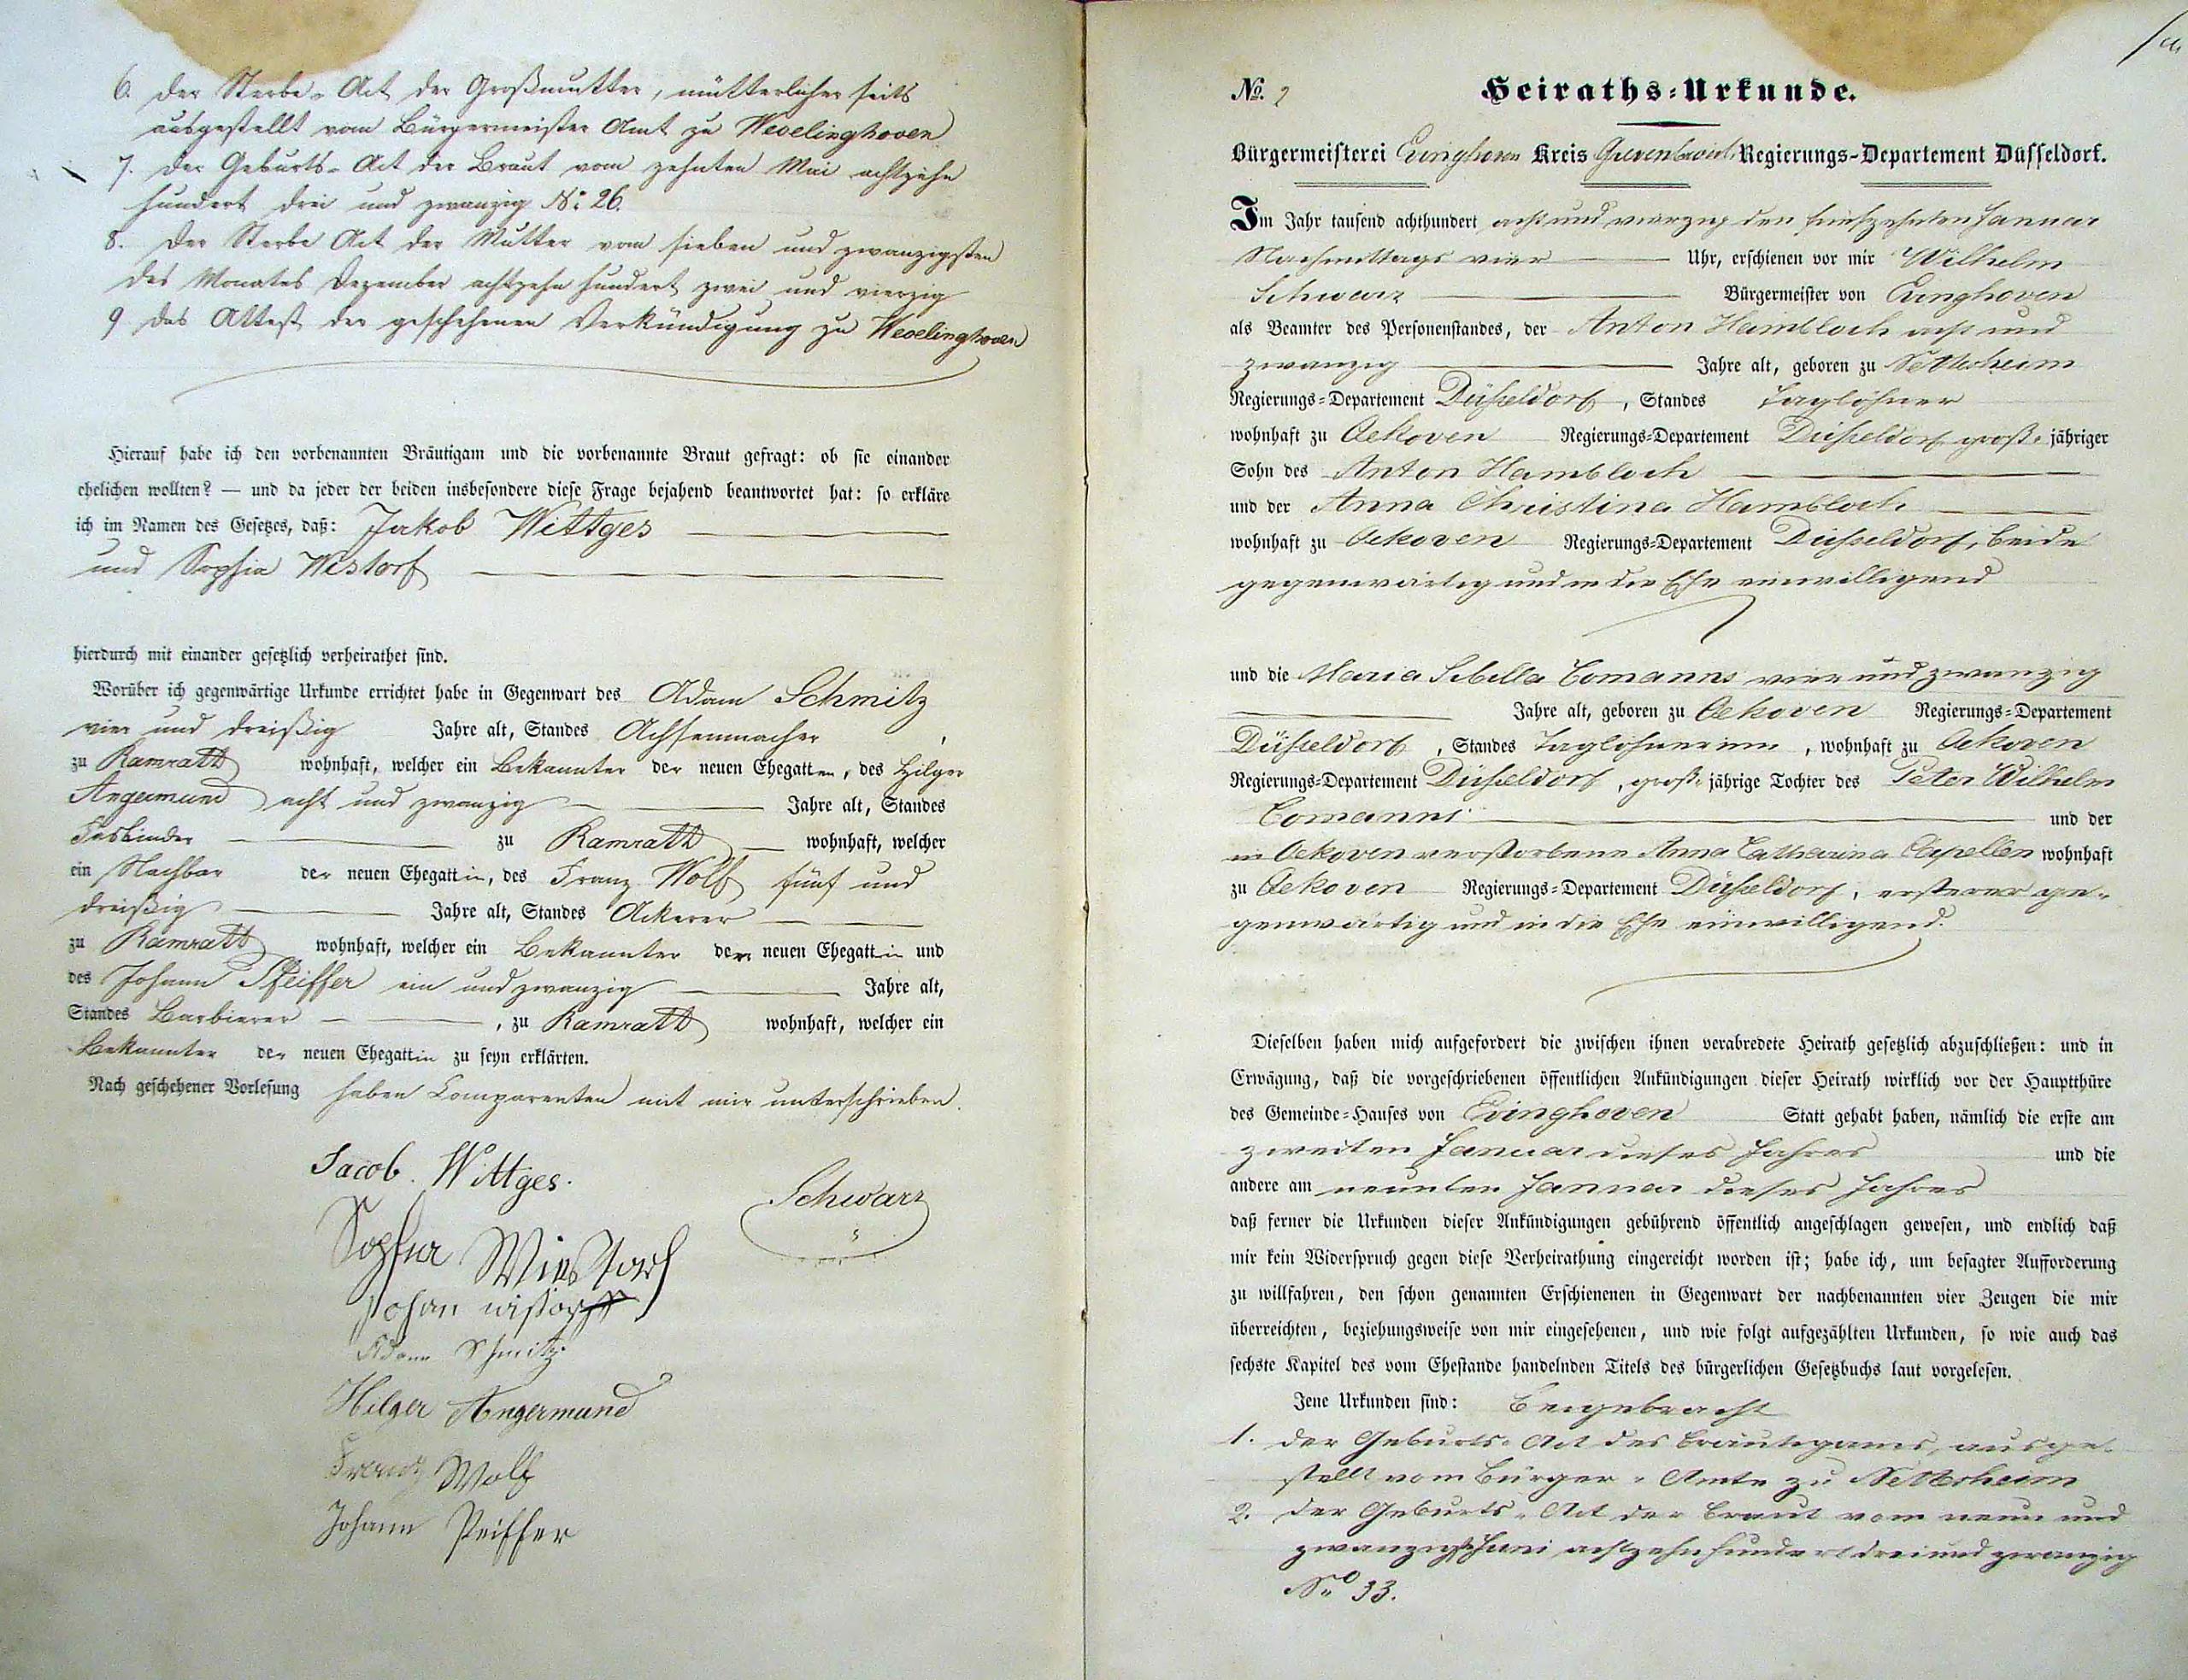 6. Der Sterbe-Act der Großmutter, mütterlicher seits
ausgestellt vom Bürgermeister Amt zu Wevelinghoven
7. Der Geburts-Act der Braut vom zehnten Mai achtzehn
hundert drei und zwanzig No: 26.
8. Der Sterbe Act der Mutter vom sieben und zwanzigsten
des Monates Dezember achtzehn hundert zwei und vierzig
9 Das Attest der geschehenen Verkündigung zu Wevelinghoven
Hierauf habe ich den vorbenannten Bräutigam und die vorbenannte Braut gefragt: ob sie einander
ehelichen wollten? — und da jeder der beiden insbesondere diese Frage bejahend beantwortet hat: so erkläre
ich im Namen des Gesetzes, daß: Jakob Wittges
und Sophia Wistorf
hierdurch mit einander gesetzlich verheirathet sind.
Worüber ich gegenwärtige Urkunde errichtet habe in Gegenwart des Adam Schmitz
vier und dreißig Jahre alt, Standes Achsenmacher,
zu Ramrath wohnhaft, welcher ein Bekannter der neuen Ehegatten, des Hilger
Angermund acht und zwanzig Jahre alt, Standes
Fasbinder zu Ramrath wohnhaft, welcher
ein Nachbar der neuen Ehegattin, des Franz Wolf fünf und
dreißig Jahre alt, Standes Ackerer
zu Ramrath wohnhaft, welcher ein Bekannter der neuen Ehegattin und
des Johann Pfeiffer ein und zwanzig Jahre alt,
Standes Barbierer, zu Ramrath wohnhaft, welcher ein
Bekannter der neuen Ehegattin zu seyn erklärten.
Nach geschehener Vorlesung haben Comparenten mit mir unterschrieben.
Jacob. Wittges.
Schwarz
Sophia Wistorf
Johan wistorff
Adam Schmitz
Hilger Angermund
Franz Wolf
Johann Peiffer
No. 2
Heiraths-Urkunde.
Bürgermeisterei Evinghoven Kreis Grevenbroich Regierungs-Departement Düsseldorf.
Im Jahr tausend achthundert acht und vierzig den fünfzehnten Januar
Nachmittags vier Uhr, erschienen vor mir Wilhelm
Schwarz Bürgermeister von Evinghoven
als Beamter des Personenstandes, der Anton Hambloch acht und
zwanzig Jahre alt, geboren zu Nettesheim
Regierungs-Departement Düsseldorf, Standes Taglöhner
wohnhaft zu Oekoven Regierungs-Departement Düsseldorf groß-jähriger
Sohn des Anton Hambloch
und der Anna Christina Hambloch
wohnhaft zu Oekoven Regierungs-Departement Düsseldorf, beide
gegenwärtig und in die Ehe einwilligend
und die Maria Sibella Comanns vier und zwanzig
Jahre alt, geboren zu Oekoven Regierungs-Departement
Düsseldorf, Standes Taglöhnerinn, wohnhaft zu Oekoven
Regierungs-Departement Düsseldorf, groß-jährige Tochter des Peter Wilhelm
Comanns und der
in Oekoven verstorbene Anna Catharina Capellen wohnhaft
zu Oekoven Regierungs-Departement Düsseldorf, ersterer ge-
genwärtig und in die Ehe einwilligend.
Dieselben haben mich aufgefordert die zwischen ihnen verabredete Heirath gesetzlich abzuschließen: und in
Erwägung, daß die vorgeschriebenen öffentlichen Ankündigungen dieser Heirath wirklich vor der Hauptthüre
des Gemeinde-Hauses von Evinghoven Statt gehabt haben, nämlich die erste am
zweiten Januar dieses Jahres und die
andere am neunten Januar dieses Jahres
daß ferner die Urkunden dieser Ankündigungen gebührend öffentlich angeschlagen gewesen, und endlich daß
mir kein Widerspruch gegen diese Verheirathung eingereicht worden ist; habe ich, um besagter Aufforderung
zu willfahren, den schon genannten Erschienenen in Gegenwart der nachbenannten vier Zeugen die mir
überreichten, beziehungsweise von mir eingesehenen, und wie folgt aufgezählten Urkunden, so wie auch das
sechste Kapitel des vom Ehestande handelnden Titels des bürgerlichen Gesetzbuchs laut vorgelesen.
Jene Urkunden sind: Beigebracht
1. Der Geburts-Act des Bräutigams, ausge-
stellt vom Bürger-Amte zu Nettesheim
2. Der Geburts-Act der Braut vom neun und
zwanzigst Juni achtzehnhundert drei und zwanzig
No 33.